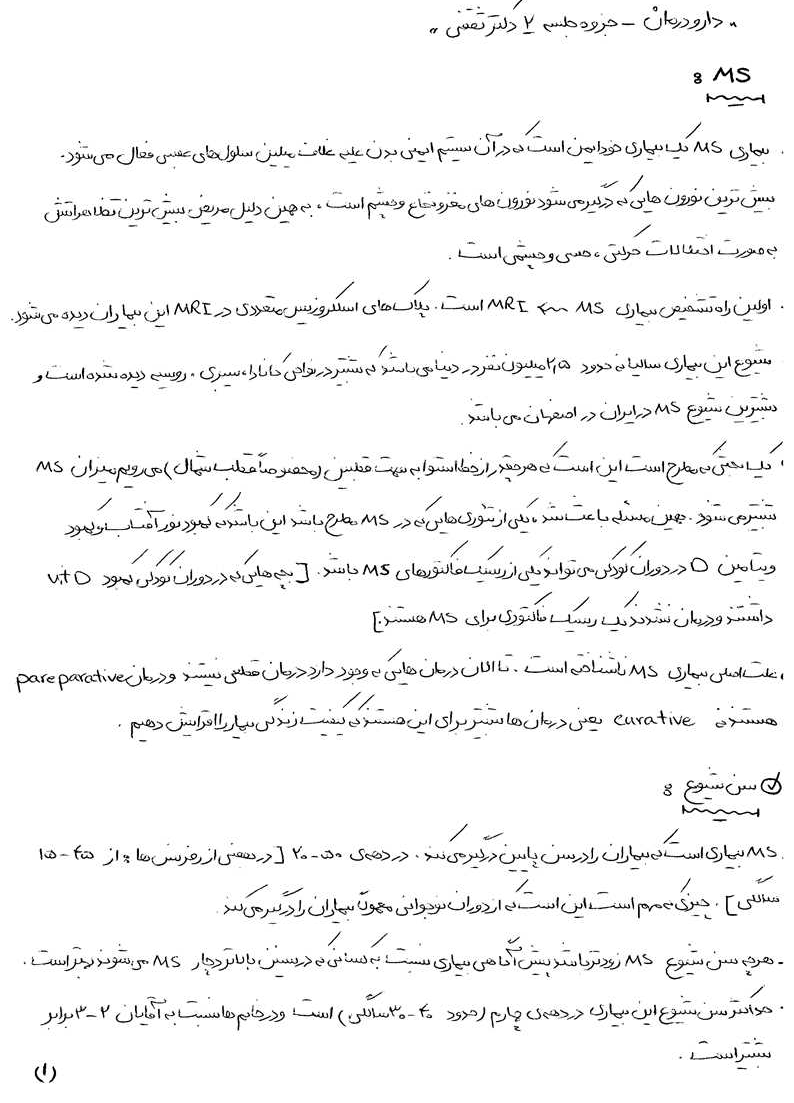 " دارو درمان – جزوه جلسه ۲ دکتر ثقفی "
MS :
. بیماری MS یک بیماری خودایمن است که در آن سیستم ایمنی بدن علیه غلاف میلین سلول‌های عصبی فعال می‌شود.
بیش ترین نورون هایی که درگیر می شود نورون های مغز و نخاع و چشم است ، به همین دلیل مریض بیش ترین تظاهراتش
به صورت اختلالات حرکتی ، حسی و چشمی است .
. اولین راه تشخیص بیماری MS ← MRI است . پلاک های اسکلروزیس متعددی در MRI این بیماران دیده می شود.
شیوع این بیماری سالیانه حدود ۲٫۵ میلیون نفر در دنیا می باشد که بیشتر در نواحی کانادا ، سیبری ، روسیه دیده شده است و
بیشترین شیوع MS در ایران در اصفهان می باشد.
. یک بحثی که مطرح است این است که هر چقدر از خط استوا به سمت قطبین (مخصوصاً قطب شمال) می رویم میزان MS
بیشتر می شود . همین مسئله باعث شد ، یکی از تئوری هایی که در MS مطرح باشد این باشد که کمبود نور آفتاب و کمبود
ویتامین D در دوران کودکی می تواند یکی از ریسک فاکتورهای MS باشد . [ بچه هایی که در دوران کودکی کمبود vit D
داشتند و درمان نشدند یک ریسک فاکتوری برای MS هستند.]
. علت اصلی بیماری MS ناشناخته است . تا الان درمان هایی که وجود دارد درمان قطعی نیستند و درمان pareparative
هستند نه curative یعنی درمان ها بیشتر برای این هستند که کیفیت زندگی بیمار را افزایش دهیم .
سن شیوع :
. MS بیماری است که بیماران را در سن پایین درگیر می کند . در دهه ی ۵۰-۲۰ [ در بعضی از رفرنس ها : از ۴۵-۱۵
سالگی ] . چیزی که مهم است این است که از دوران نوجوانی معمولاً بیماران را درگیر می کند.
- هر چه سن شیوع MS زودتر باشد پیش آگاهی بیماری نسبت به کسانی که در سنین بالاتر دچار MS می شوند بهتر است .
. حداکثر سن شیوع این بیماری در دهه ی چهارم (حدود ۴۰-۳۰ سالگی) است و در خانم ها نسبت به آقایان ۳-۲ برابر
بیشتر است .
(۱)